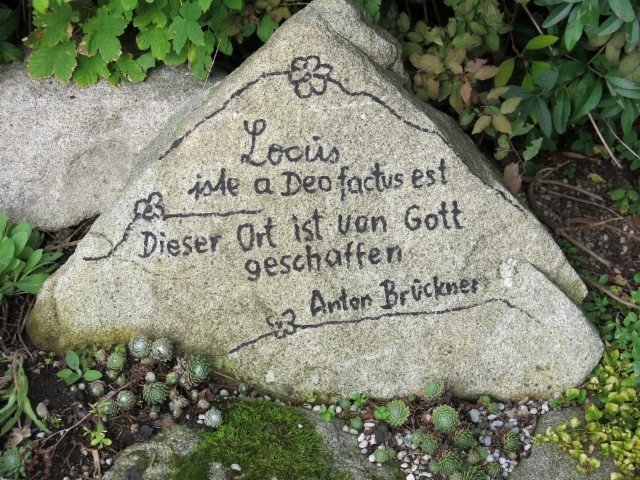 Locus
iste a Deo factus est
Dieser Ort ist von Gott
geschaffen
Anton Brückner